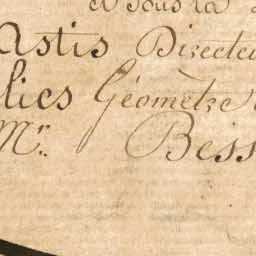 et sous la
astis Directeu
lics Géometre
Mr. Bess